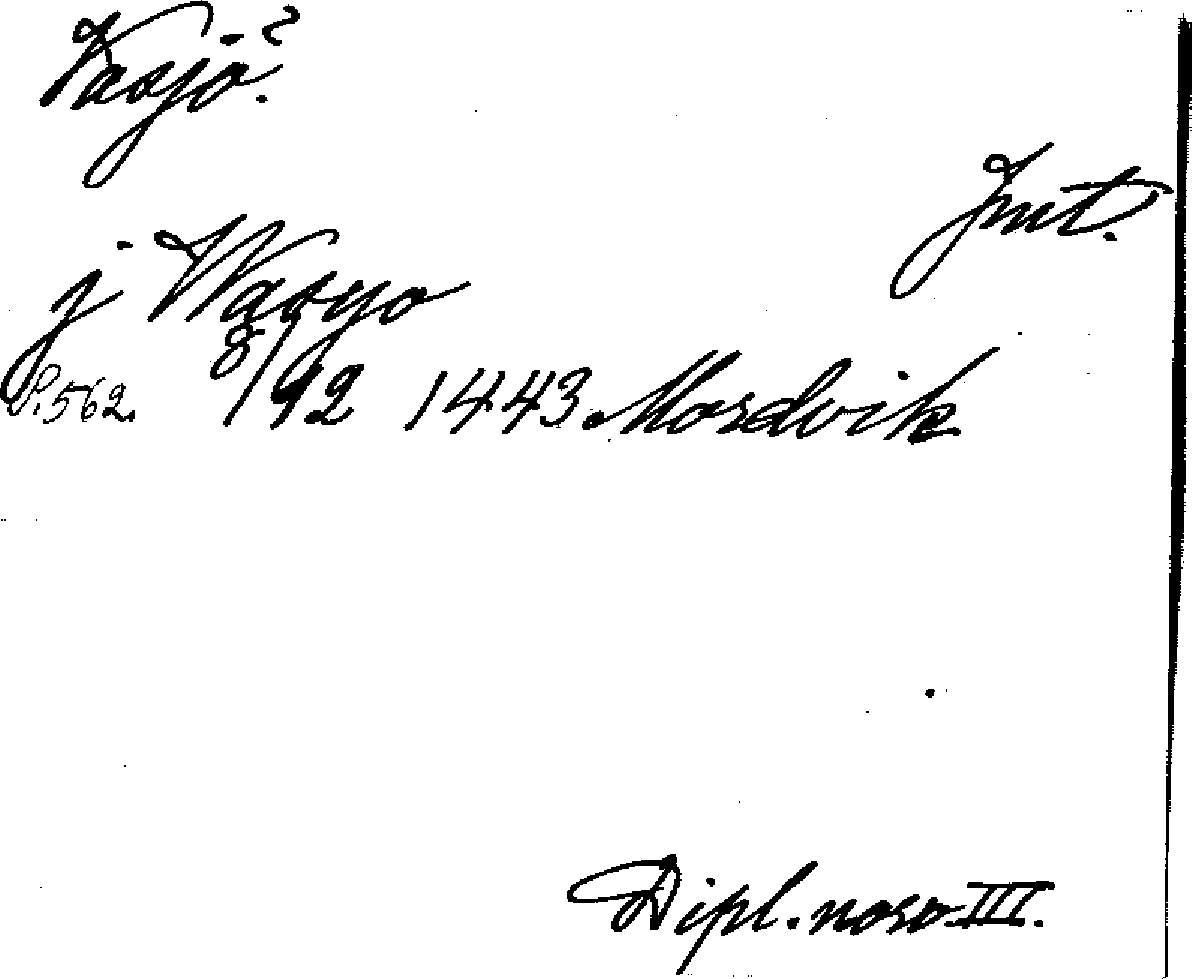 Vasjö.?
Jmt.
j Wasyo
S. 562. 8/12 1443. Mordvik
Dipl. norv. III.